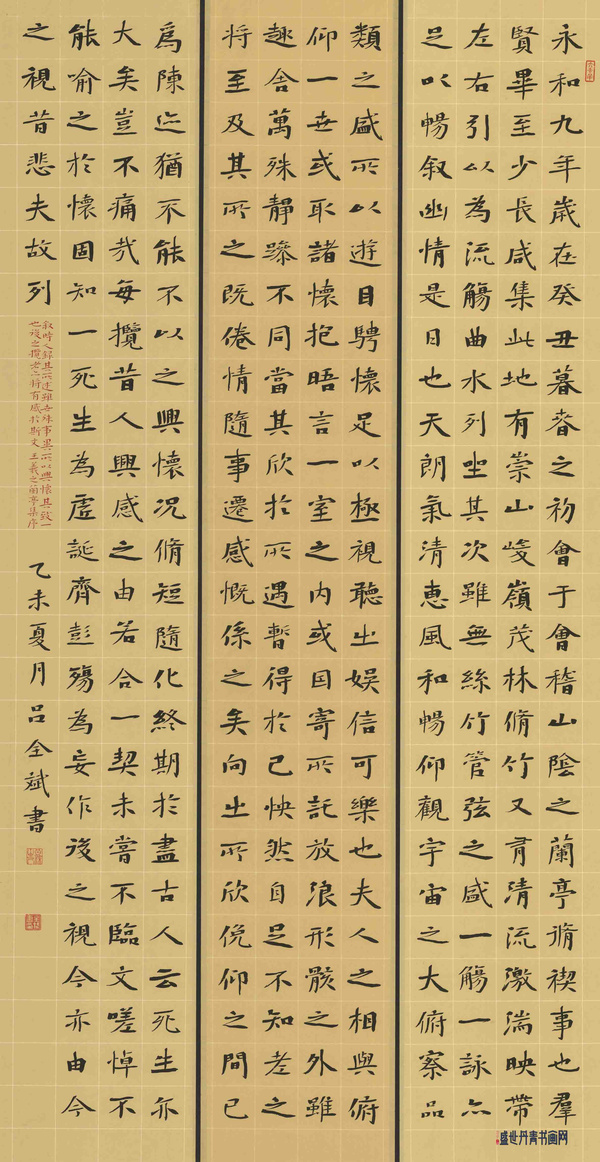 永和九年歲在癸丑暮春之初會于會稽山陰之蘭亭脩禊事也羣
賢畢至少長咸集此地有崇山峻嶺茂林脩竹又有清流激湍映帶
左右引以為流觴曲水列坐其次雖無絲竹管弦之盛一觴一詠亦
足以暢叙幽情是日也天朗氣清惠風和暢仰觀宇宙之大俯察品
類之盛所以遊目騁懷足以極視聽之娛信可樂也夫人之相與俯
仰一世或取諸懷抱晤言一室之內或因寄所託放浪形骸之外雖
趣舍萬殊靜躁不同當其欣於所遇暫得於己怏然自足不知老之
將至及其所之既倦情隨事遷感慨係之矣向之所欣俛仰之間已
為陳迹猶不能不以之興懷況脩短隨化終期於盡古人云死生亦
大矣豈不痛哉每攬昔人興感之由若合一契未嘗不臨文嗟悼不
能喻之於懷固知一死生為虛誕齊彭殤為妄作後之視今亦由今
之視昔悲夫故列
叙時人錄其所述雖世殊事異所以興懷其致一
也後之攬者亦將有感於斯文 王羲之蘭亭集序
乙未夏月呂全斌書
盛世丹青书画网